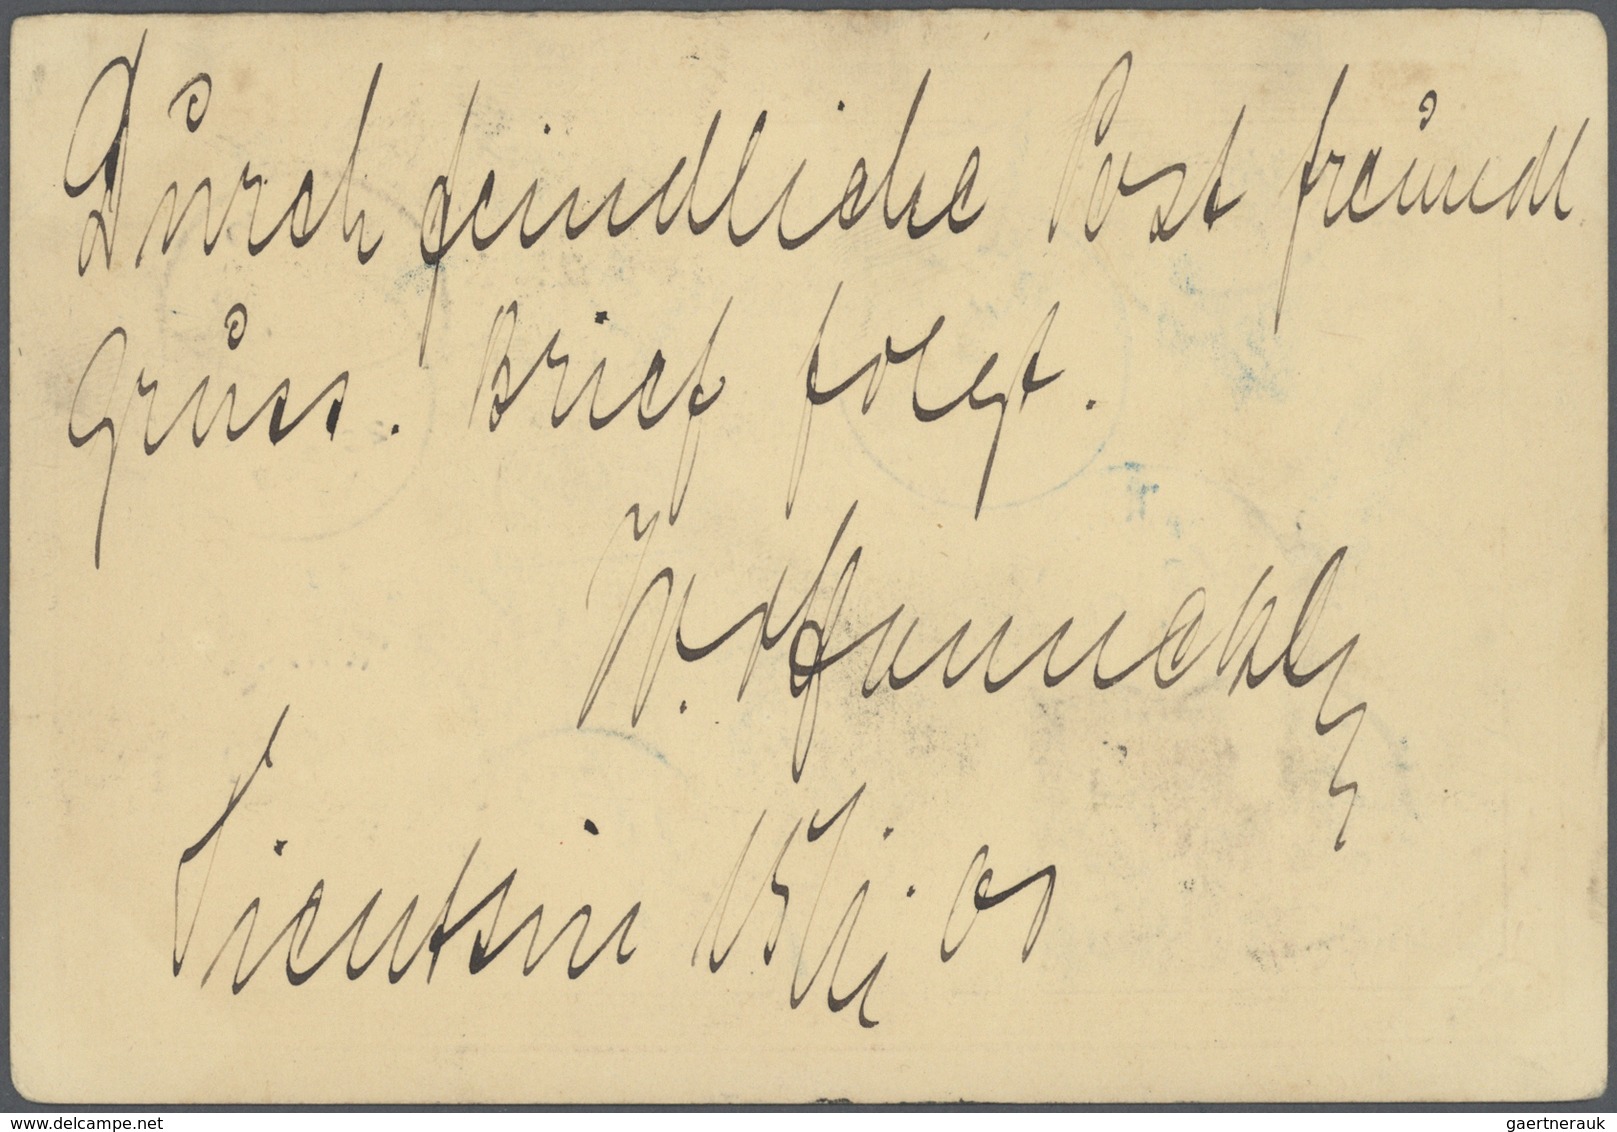 Durch feindliche Post freundl.
Gruss. Brief folgt.
Tientsin 15/ 01
www.delcampe.net
gaertnerauk